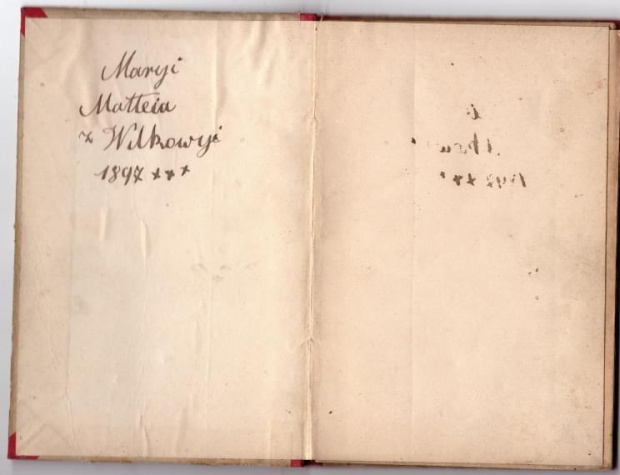 Maryi
Matteia
z Wilkowyi
1897 +++